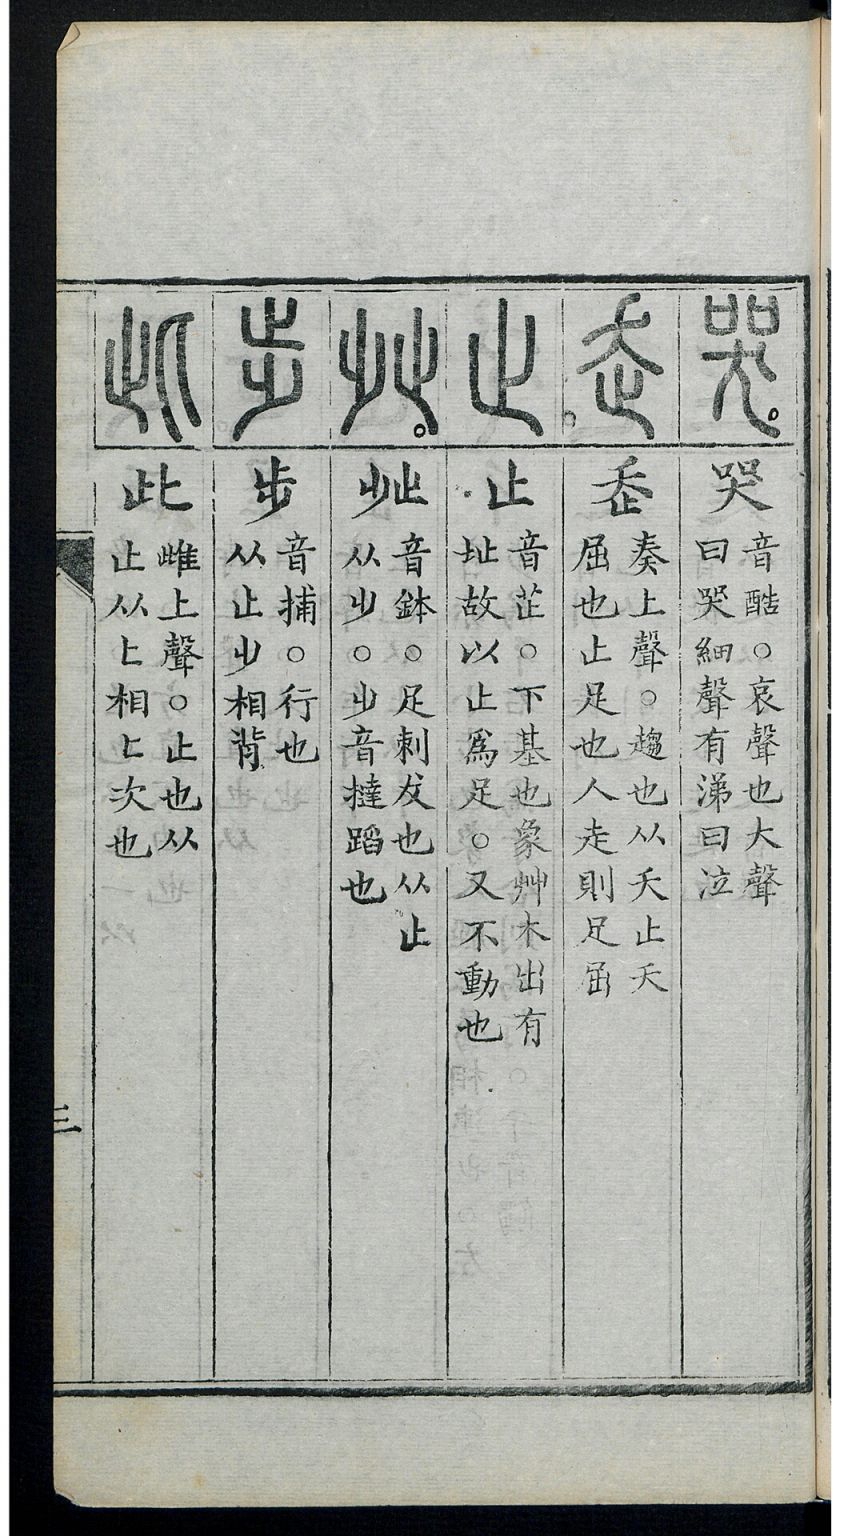 哭
哭
音酷○哀聲也大聲
曰哭細聲有涕曰泣
走
奏上聲○趨也从夭止夭
屈也止足也人走則足屈
止
止
音芷○下基也象艸木出有
址故以止爲足○又不動也
癶
音鉢○足刺犮也从止
从少○少音撻蹈也
步
步
音捕○行也
从止少相背
此
此
雌上聲○止也从
止从匕相匕次也
三